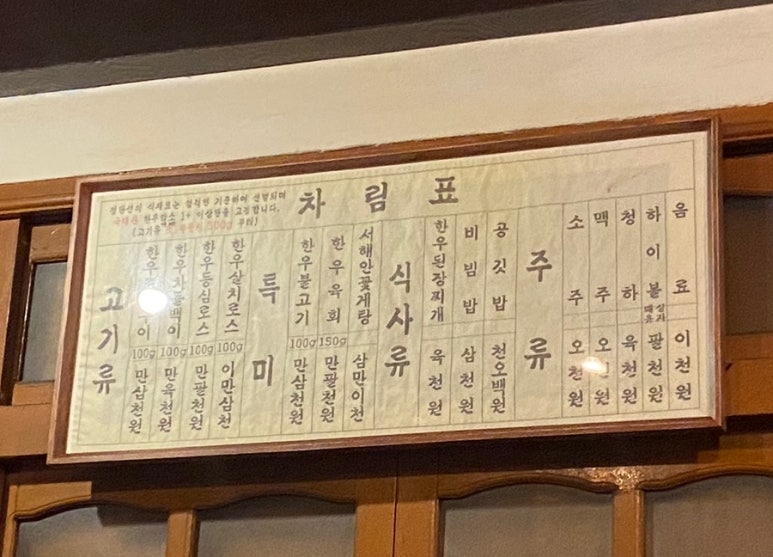 차림표
한우암소 1+ 이상만을 고집합니다.
고기류
한우차돌백이 100g 만육천원
한우등심로스 100g 만팔천원
한우살치로스 100g 이만삼천
100g 만삼천원
특미
한우불고기 100g 만삼천원
한우육회 150g 만팔천원
서해안꽃게탕 삼만이천
식사류
한우된장찌개 육천원
비빔밥 삼천원
공깃밥 천오백원
주류
소주 오천원
맥주 오천원
청하 육천원
하이볼 팔천원
음료 이천원